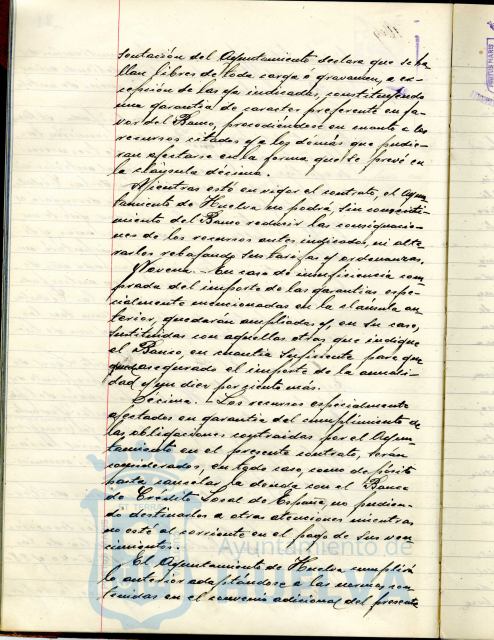 sentación del Ayuntamiento declara que se ha-
llan libres de toda carga o gravamen, a ex-
cepción de las ya indicadas, constituyendo
una garantía de caracter preferente en fa-
vor del Banco, procediéndose en cuanto a los
recursos citados y a los demás que pudie-
ran afectarse en la forma que se prevé en
la cláusula décima.
Mientras esté en vigor el contrato, el Ayun-
tamiento de Huelva no podrá, sin consenti-
miento del Banco reducir las consignacio-
nes de los recursos antes indicados, ni alte-
rarlos rebajando sus tarifas y ordenanzas.
Novena.- En caso de insuficiencia com-
probada del importe de las garantías espe-
cialmente mencionadas en la cláusula an-
terior, quedarán ampliadas y, en su caso,
sustituidas con aquellas otras que indique
el Banco, en cuantía suficiente para que
quede asegurado el importe de la anuali-
dad y un diez por ciento más.
Décima.- Los recursos especialmente
afectados en garantía del cumplimiento de
las obligaciones contraidas por el Ayun-
tamiento en el presente contrato, serán
considerados, en todo caso, como depósito
hasta cancelar la deuda con el Banco
de Crédito Local de España, no pudien-
do destinarlos a otras atenciones mientras
no esté al corriente en el pago de sus ven-
cimientos.
El Ayuntamiento de Huelva cumplirá
lo anterior adaptándose a las normas con-
tenidas en el convenio adicional del presente
Ayuntamiento de
HUELVA